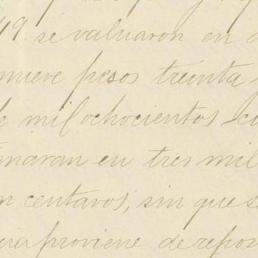 49 se valuaron en
nueve pesos treinta
mil ochocientos
en tres mil
centavos, sin que
proviene de repos